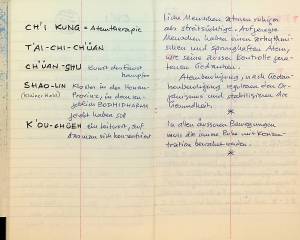 CH'I KUNG = Atemtherapie
T'AI-CHI-CH'ÜAN
CH'ÜAN-SHU Kunst der Faust
kampfes
SHAO-LIN Kloster in der Honan-
(kleiner Wald) Provinz, in dem an-
geblich BODHIDHARMA
gelebt haben soll
K'OU-CHÜEH ein Leitwort, auf
das man sich konzentriert
liche Menschen atmen ruhiger
als streitsüchtige. Aufgeregte
Menschen haben einen arhythmi-
schen und sprunghaften Atem,
wie seine ausser Kontrolle gera-
tenen Gedanken.
Atemberuhigung, nach Gedan-
kenberuhigung regulieren den Or-
ganismus und stabilisieren die
Gesundheit.
*
In allen äusseren Bewegungen
muss die innere Ruhe mit Konzen-
tration bewahrt werden.
*